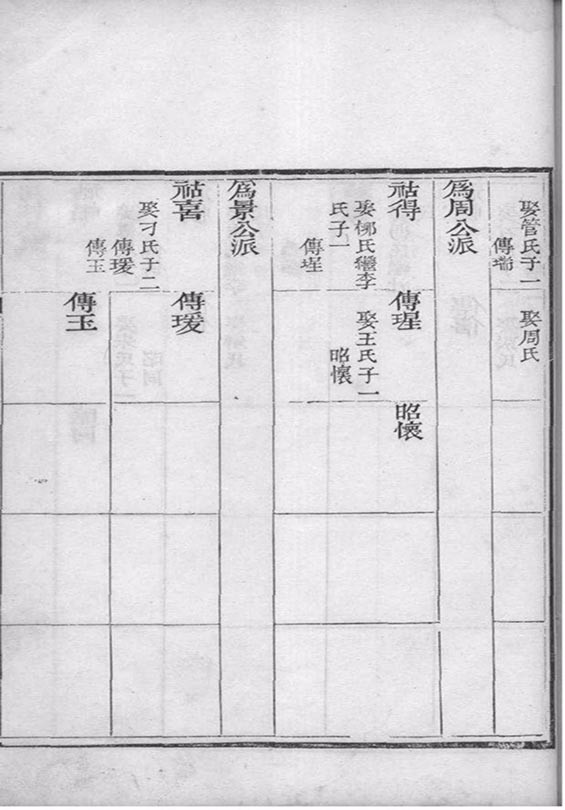 娶管氏子一
傳瑞
娶周氏
為周公派
祜得
娶柳氏繼李
氏子一
傳瑆
傳瑆
娶王氏子一
昭懷
昭懷
為景公派
祜喜
娶刁氏子二
傳瑗
傳玉
傳瑗
傳玉